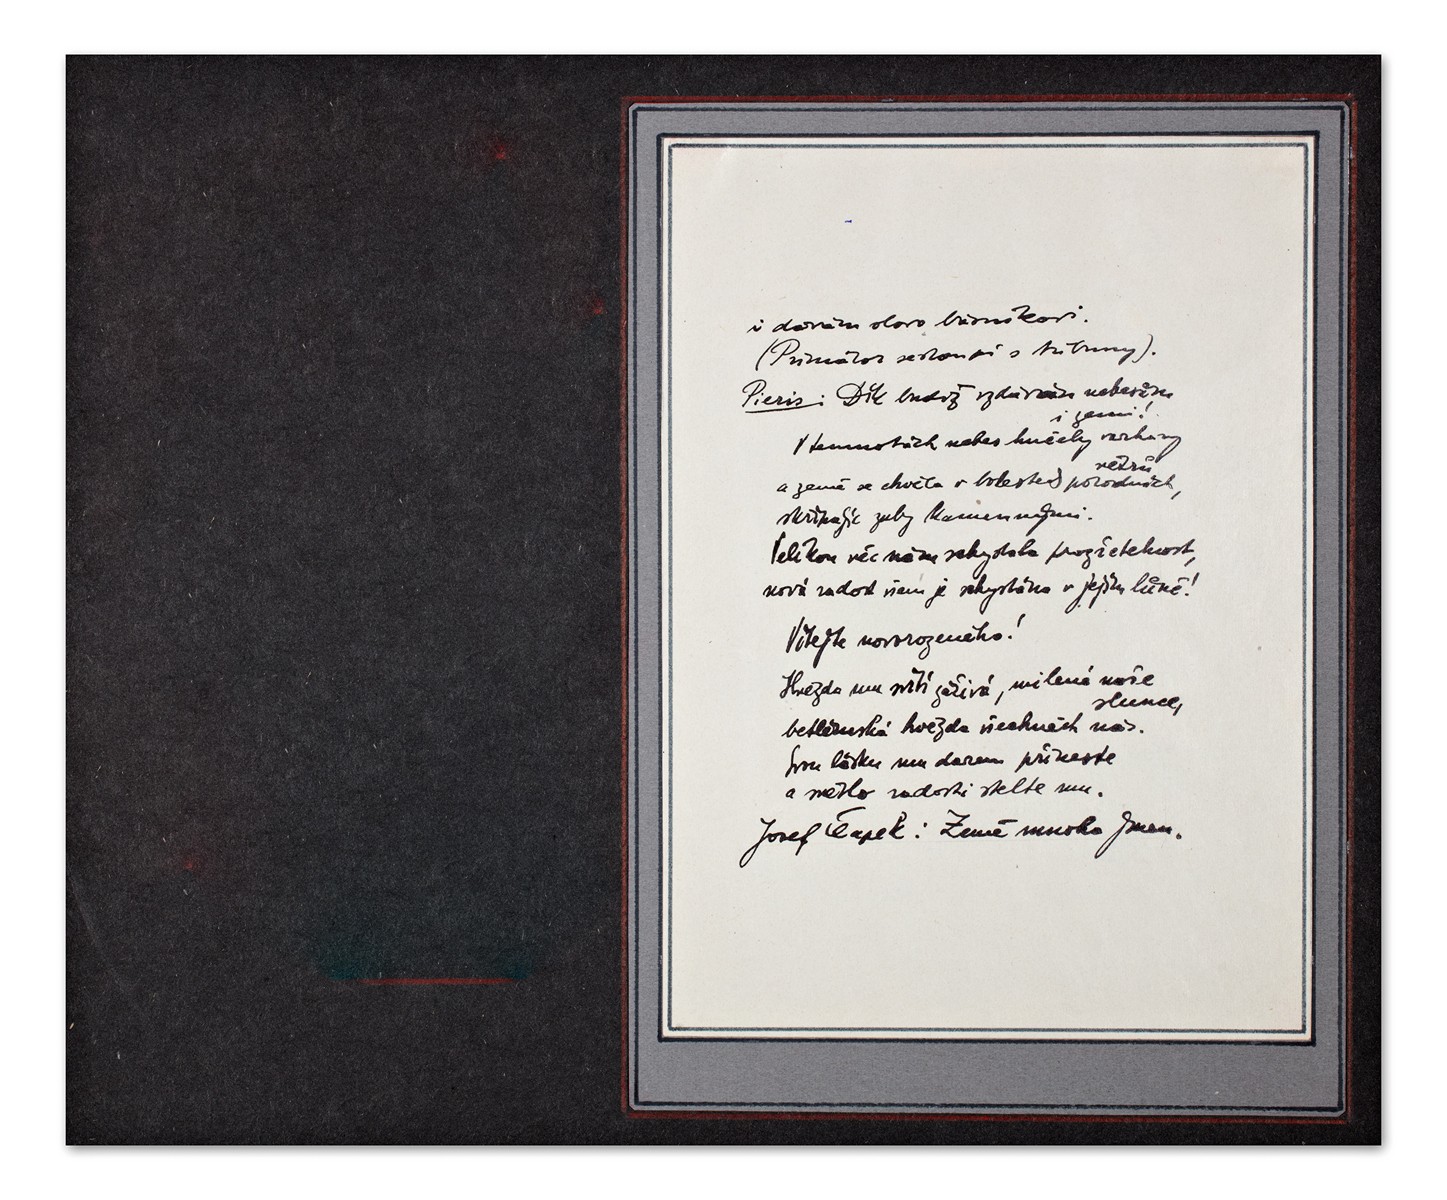 i dávám slovo básníkovi.
(Primátor sestoupí s tribuny).
Pieris: Dík budiž vzdáván nebesům
i zemi!
V temnotách nebes hučely varhany
větrů
a země se chvěla v bolestech porodních,
skřípajíc zuby kamennými.
Velikou věc nám uchystala prozřetelnost,
nová radost všem je uchystána v jejím lůně!
Vítejte novorozeného!
Hvězda mu svítí zářivá, milená naše
slunce,
betlémská hvězda všechněch nás.
Svou lásku mu darem přineste
a světlo radosti stelte mu.
Josef Čapek: Země mnoha jmen.